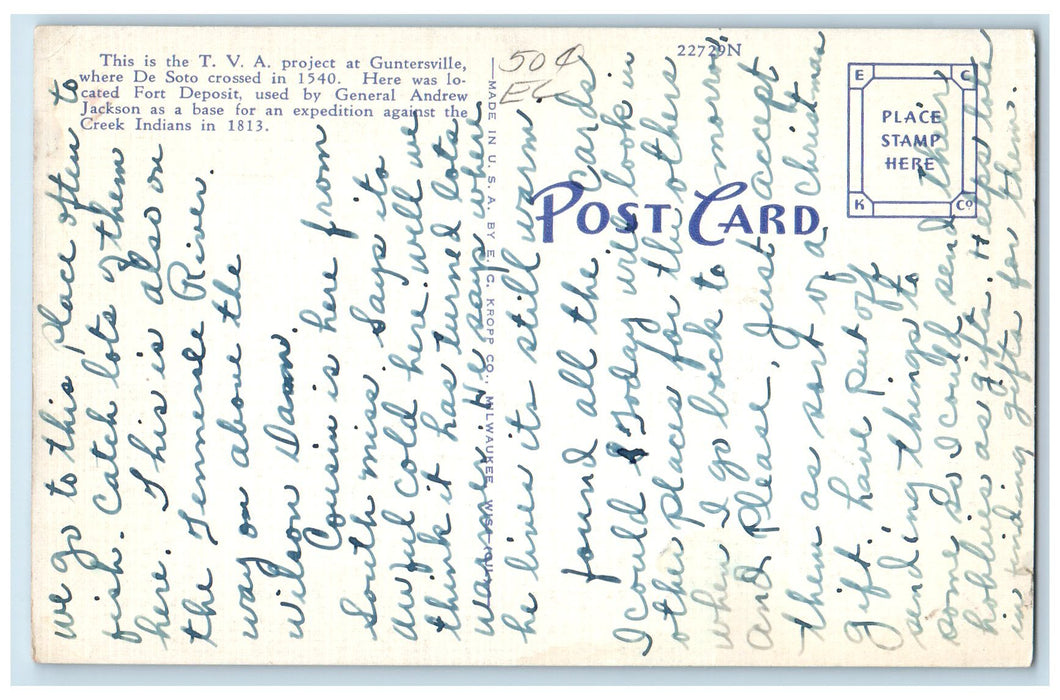 This is the T. V. A. project at Guntersville,
where De Soto crossed in 1540. Here was lo-
cated Fort Deposit, used by General Andrew
Jackson as a base for an expedition against the
Creek Indians in 1813.
50¢
EC
22729N
PLACE
STAMP
HERE
E C
K Co
POST CARD
—MADE IN U. S. A. BY E. C. KROPP CO., MILWAUKEE, WIS.
we go to this place often to
fish. Catch lots of them
here. This is also on
the Tennesse River.
way on above the
Wilson Dam.
Cousin is here from
South miss. Says it
awful cold here. will we
think it has turned lots
warmer. He says where
he lives its still warm.
found all the Cards
I could Today will look in
other places for the others
when I go back to morrow
And Please, Just accept
them as sort of a Christmas
Gift. have put off
sending things to
some so I could send their
hobbies as gifts. Helps lots
in finding gifts for them.